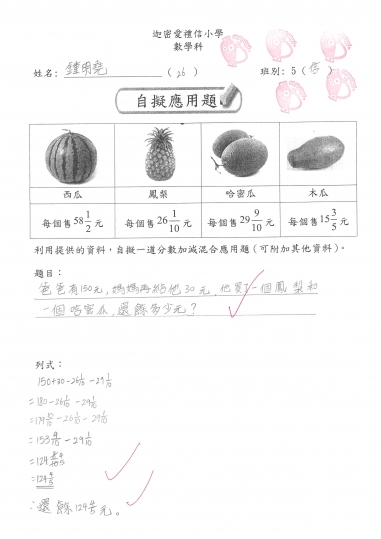 迦密愛禮信小學
數學科
姓名: 鍾明堯 (26) 班別: 5 (信)
自擬應用題
西瓜 鳳梨 哈密瓜 木瓜
每個售 58 1/2 元 每個售 26 1/10 元 每個售 29 9/10 元 每個售 15 3/5 元
利用提供的資料,自擬一道分數加減混合應用題(可附加其他資料)。
題目:
爸爸有150元,媽媽再給他30元,他買了一個鳳梨和
一個哈密瓜,還餘多少元?
列式:
150+30-26 1/10-29 1/10
=180-26 1/10-29 1/10
=179 10/10-26 1/10-29 1/10
=153 9/10-29 1/10
=124
=124 4/5
∴還餘124 4/5元。